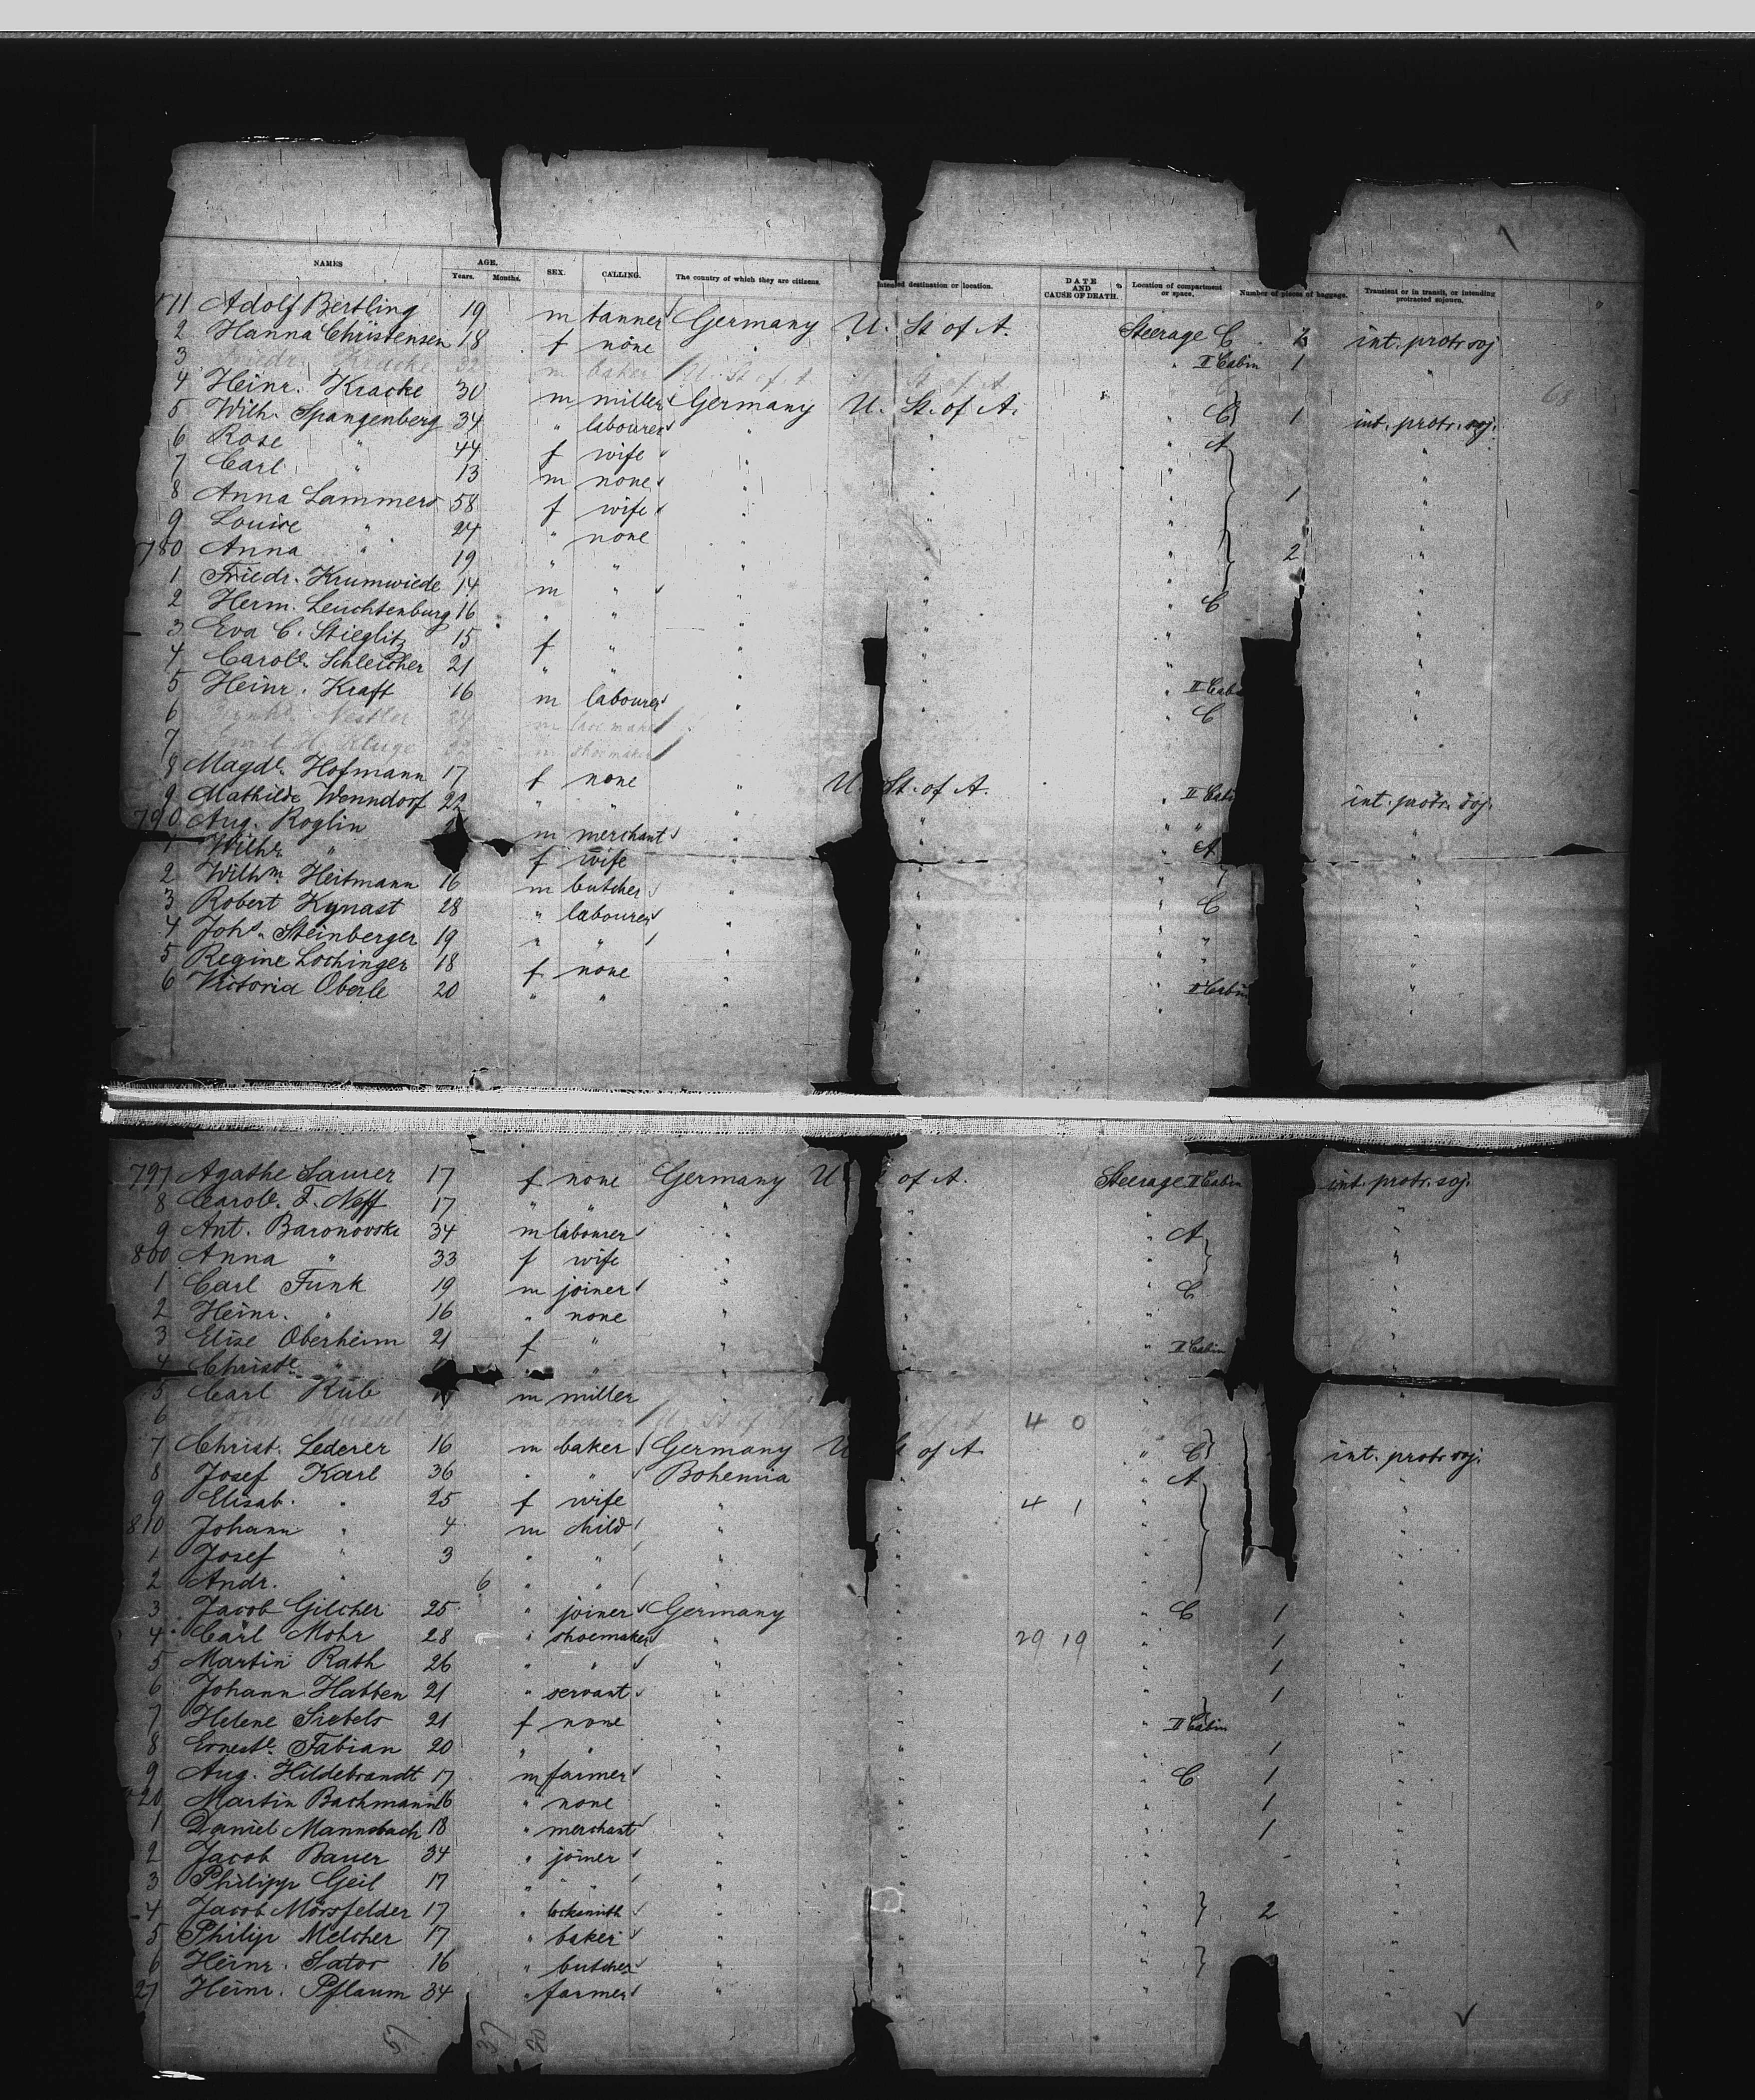 NAMES AGE. Years. Months. SEX. CALLING. The country of which they are citizens. Intended destination or location. DATE AND CAUSE OF DEATH. Location of compartment or space. Number of pieces of baggage. Transient or in transit, or intending protracted sojourn.
11 Adolf Bertling 19 m tanner Germany U. St of A. Steerage C int. protr soj
2 Hanna Christensen 18 f none " " " II Cabin 1 "
3 Friedr. Kracke 32 m baker U. St of A. St of A
4 Heinr. Kracke 30 m miller Germany U. St. of A. " C 1 int. protr. soj.
5 Wilh. Spangenberg 34 " labourer " " " A "
6 Rose " 44 f wife " " " "
7 Carl " 13 m none " " " 1 "
8 Anna Lammers 58 f wife " " " "
9 Louise " 24 " none " " " 2 "
780 Anna " 19 " " " " " "
1 Friedr. Krumwiede 14 m " " " " C "
2 Herm. Leuchtenburg 16 " " " " " "
3 Eva C. Stieglitz 15 f " " " " "
4 Carole. Schleicher 21 " " " " " II Cabin "
5 Heinr. Kraft 16 m labourer " " " C "
6 Nestler 24 m
7 Emil H. Kluge m shoemaker
8 Magdl. Hofmann 17 f none " U St. of A. " II Cabin int. protr. soj.
9 Mathilde Wenndorf 22 " " " " " " "
790 Aug. Roglin m merchant " " " A "
1 Wilhe " f wife " " " "
2 Wilhm. Heitmann 16 m butcher " " " C "
3 Robert Kynast 28 " labourer " " " " "
4 Johs. Steinberger 19 " " " " " " "
5 Regine Lochinger 18 f none " " " II Cabin "
6 Victoria Oberle 20 " " " " " "
797 Agathe Saurer 17 f none Germany U of A. Steerage II Cabin int. protr. soj.
8 Carole. F. Neff 17 " " " " " "
9 Ant. Baronovski 34 m labourer " " " A "
800 Anna " 33 f wife " " " "
1 Carl Funk 19 m joiner " " " C "
2 Heinr. " 16 " none " " " "
3 Elise Oberheim 21 f " " " " II Cabin "
4 Christe " " " " " " "
5 Carl Rüb m miller " " " "
6 Mussel m brewer U. St of A. of A 4 0
7 Christ. Lederer 16 m baker Germany U St of A " C int. protr soj.
8 Josef Karl 36 " " Bohemia " " A "
9 Elisab. " 25 f wife " " 4 1 " "
810 Johann " 4 m child " " " "
1 Josef " 3 " " " " " "
2 Andr. " 6 " " " " " "
3 Jacob Gilcher 25 " joiner Germany " " C 1 "
4 Carl Mohr 28 " shoemaker " " 29 19 " 1 "
5 Martin Rath 26 " " " " " 1 "
6 Johann Habben 21 " servant " " " 1 "
7 Helene Siebels 21 f none " " " II Cabin "
8 Erneste. Fabian 20 " " " " " 1 "
9 Aug. Hildebrandt 17 m farmer " " " C 1 "
20 Martin Bachmann 16 " none " " " 1 "
1 Daniel Mannsbach 18 " merchant " " " 1 "
2 Jacob Bauer 34 " joiner " " " - "
3 Philipp Geil 17 " " " " " "
4 Jacob Mörsfelder 17 " locksmith " " " 2 "
5 Philip Melcher 17 " baker " " " "
6 Heinr. Sator 16 " butcher " " " "
27 Heinr. Pflaum 34 " farmer " " " "
57 37 20